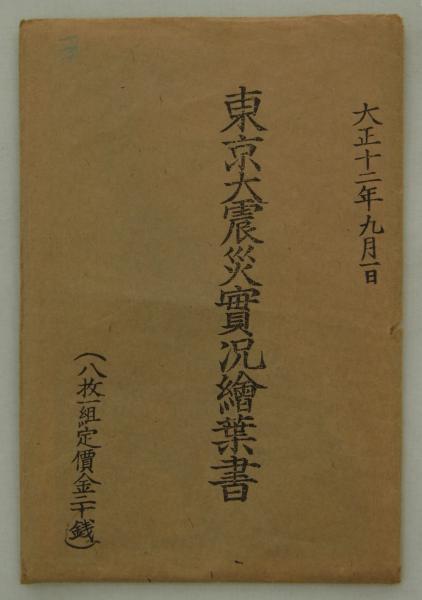 大正十二年九月一日
東京大震災實況繪葉書
(八枚一組定價金二十錢)